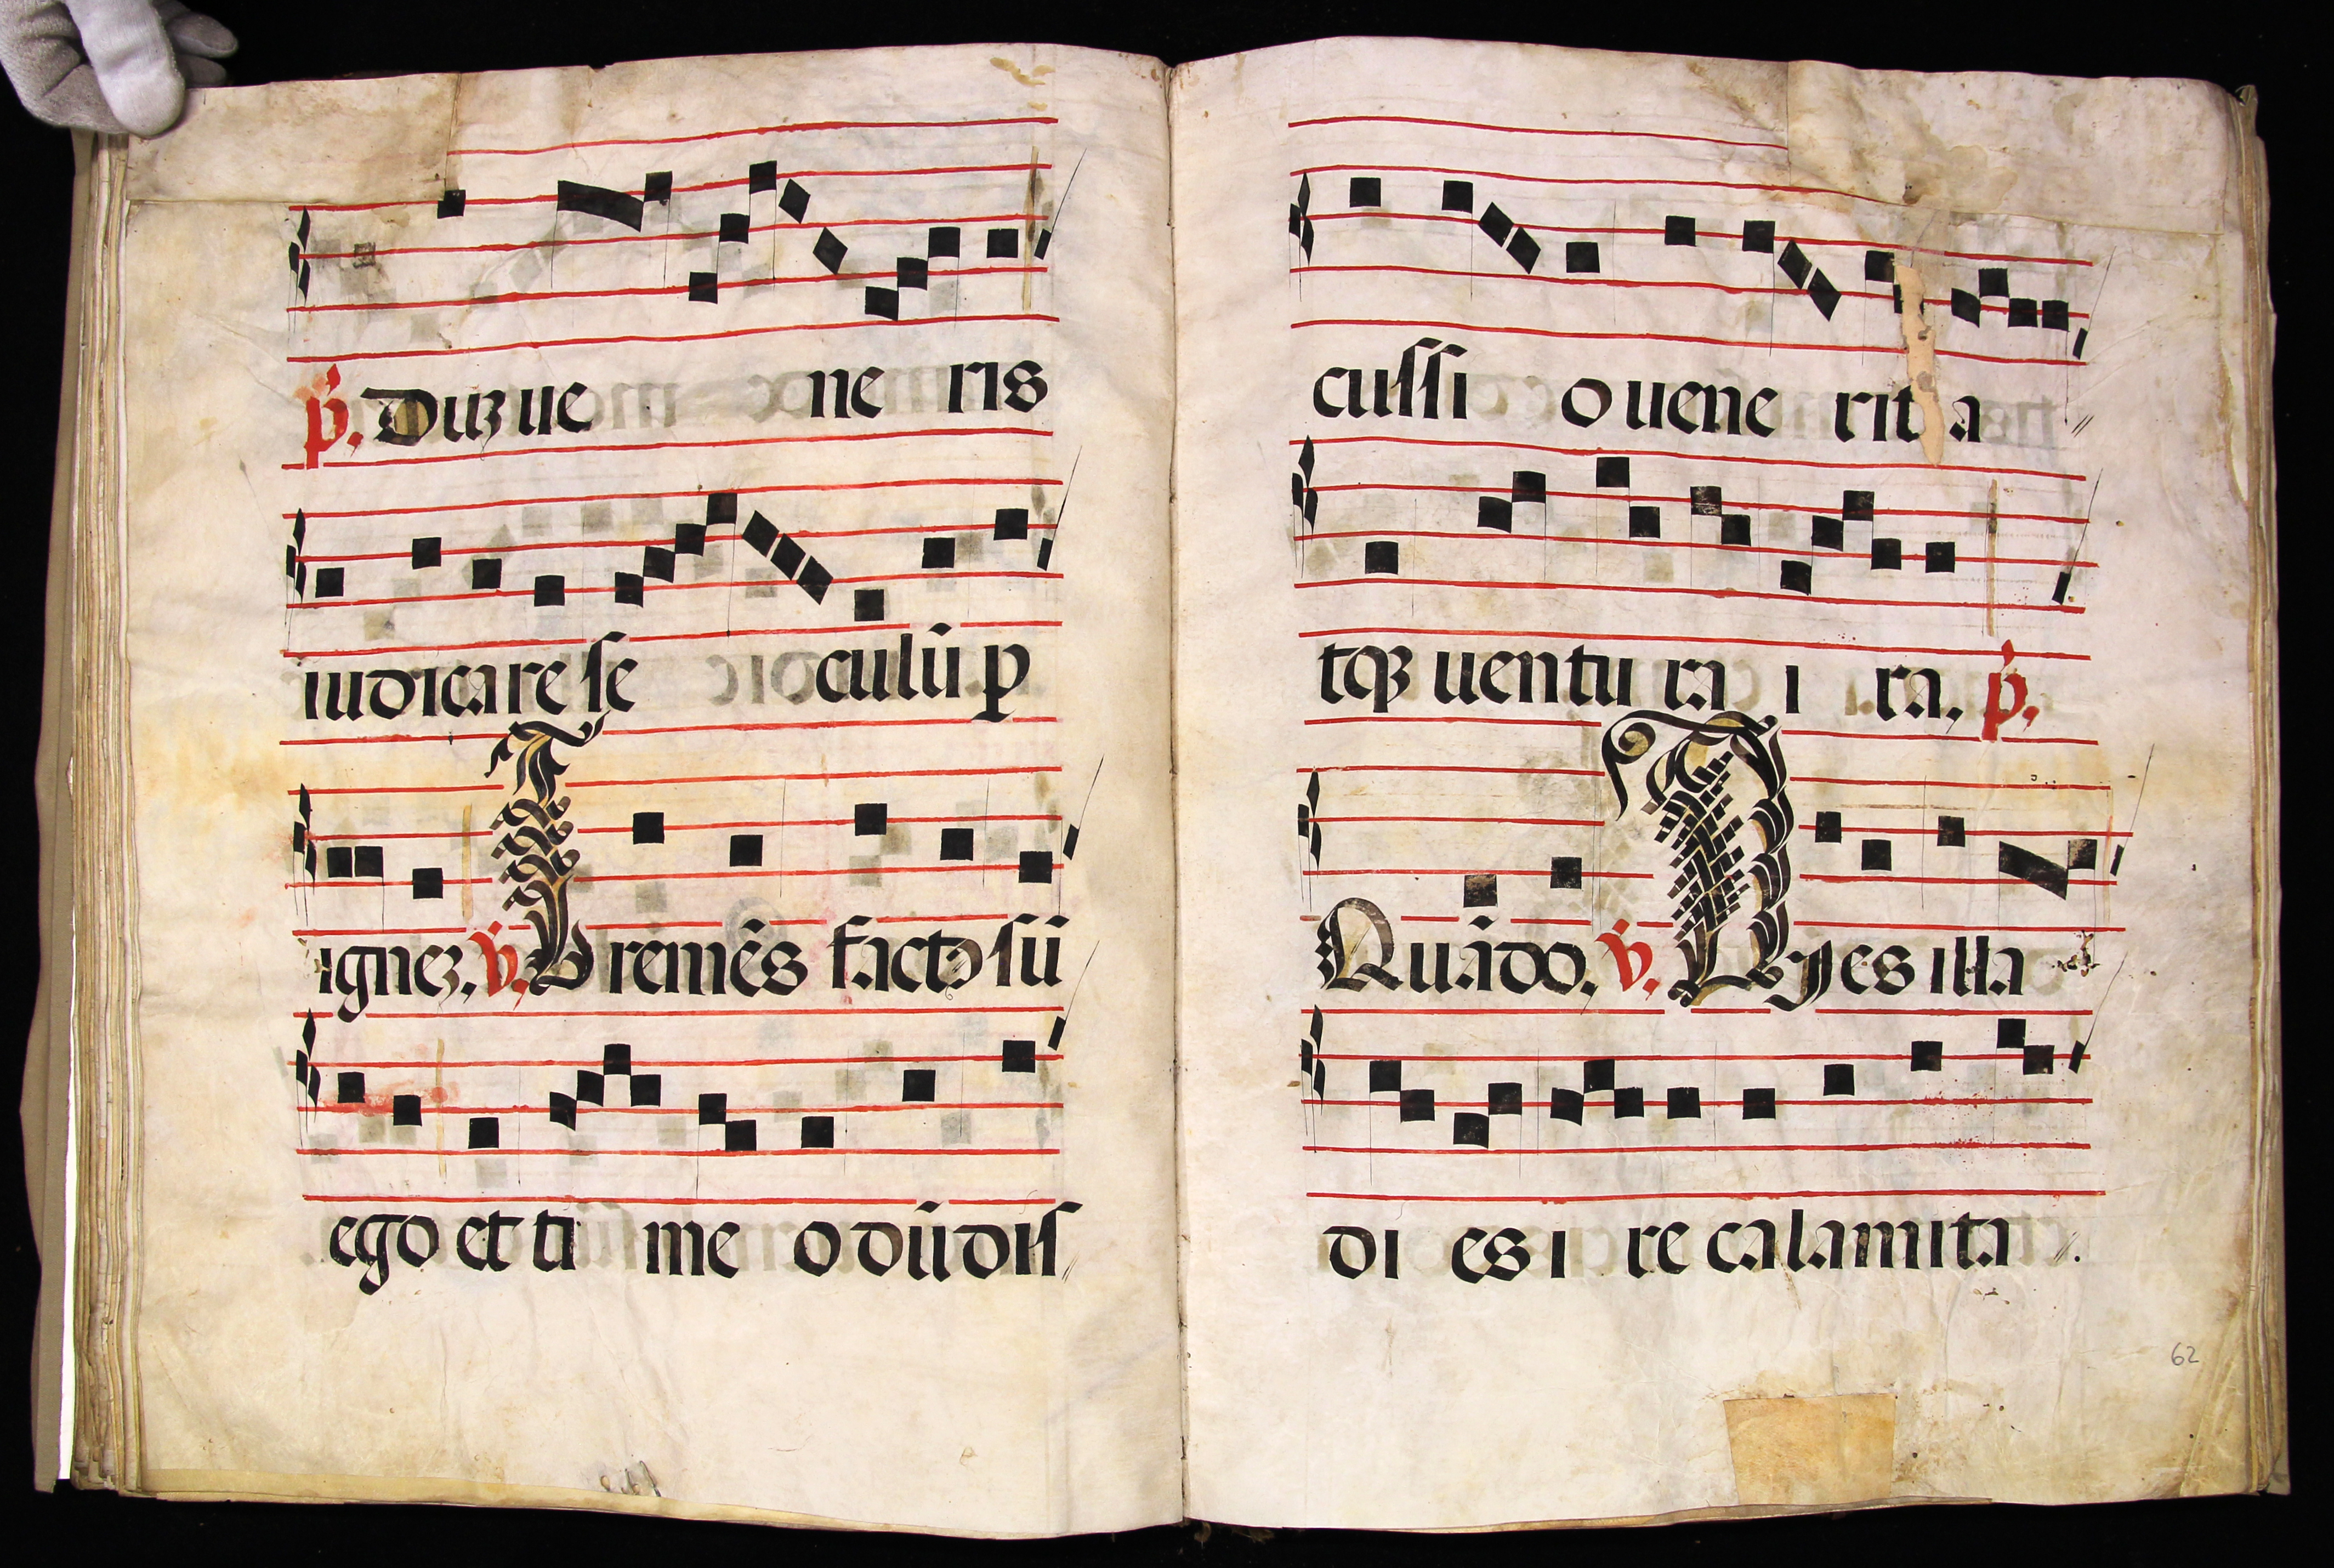 p. Duz ue ne ris
iudicare se culũ p
ignez. v. Tremẽs factꝰ sũ
ego et ti me o dũ dis
cussi o uene rit a
tqꝫ uentu ra i ra. p.
Quãdo. v. Dies illa
di es i re calamita
62